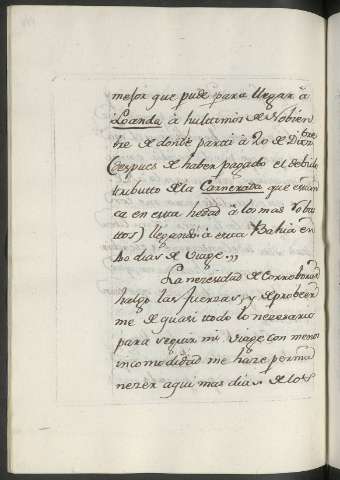 mejor que pude para llegar à
Loanda à hultimos de Nobiem
bre de donde parti à 20 de Dizbre
(despues de haber pagado el debido
tributto de la Carnerada que
ca en esta hedad à los mas robus
ttos) llegando à esta Bahia en
dias de Viage
La nezesidad de Corroborar
halgo las fuerzas, y de probeer
me de quasi todo lo nezesario
para seguir mi viage con menos
incomodidad me haze perma
nezer aqui mas dias de los